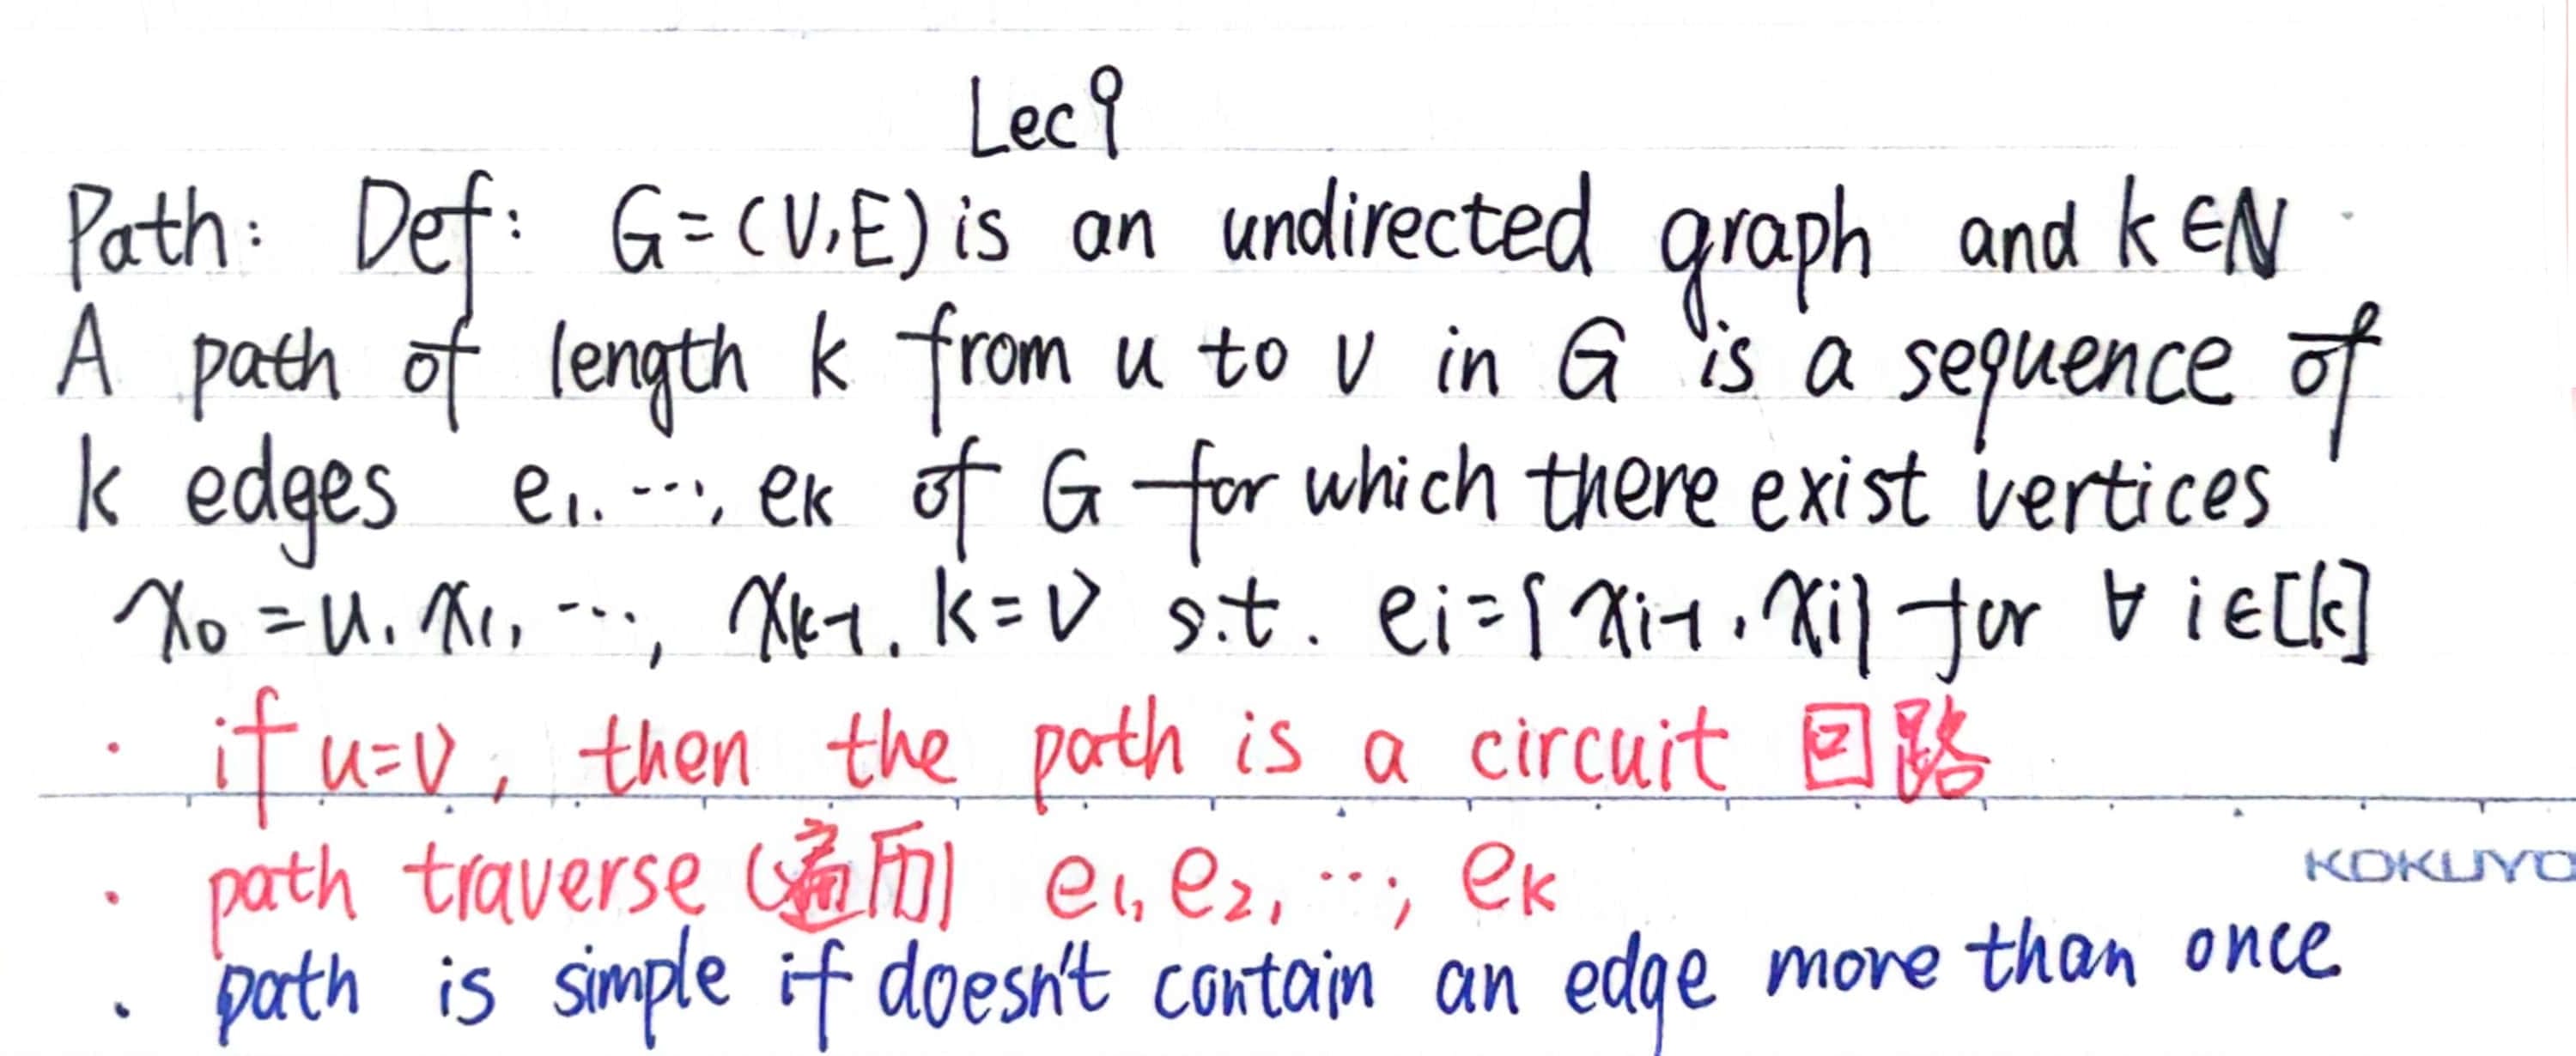 Lec9
Path: Def: G=(V,E) is an undirected graph and k∈ℕ
A path of length k from u to v in G is a sequence of
k edges e₁, ⋯, eₖ of G for which there exist vertices
x₀=u, x₁, ⋯, xₖ₋₁, k=v s.t. eᵢ={xᵢ₋₁, xᵢ} for ∀ i∈[k]
· if u=v, then the path is a circuit 回路
· path traverse (遍历) e₁, e₂, ⋯, eₖ
KOKUYO
· path is simple if doesn't contain an edge more than once